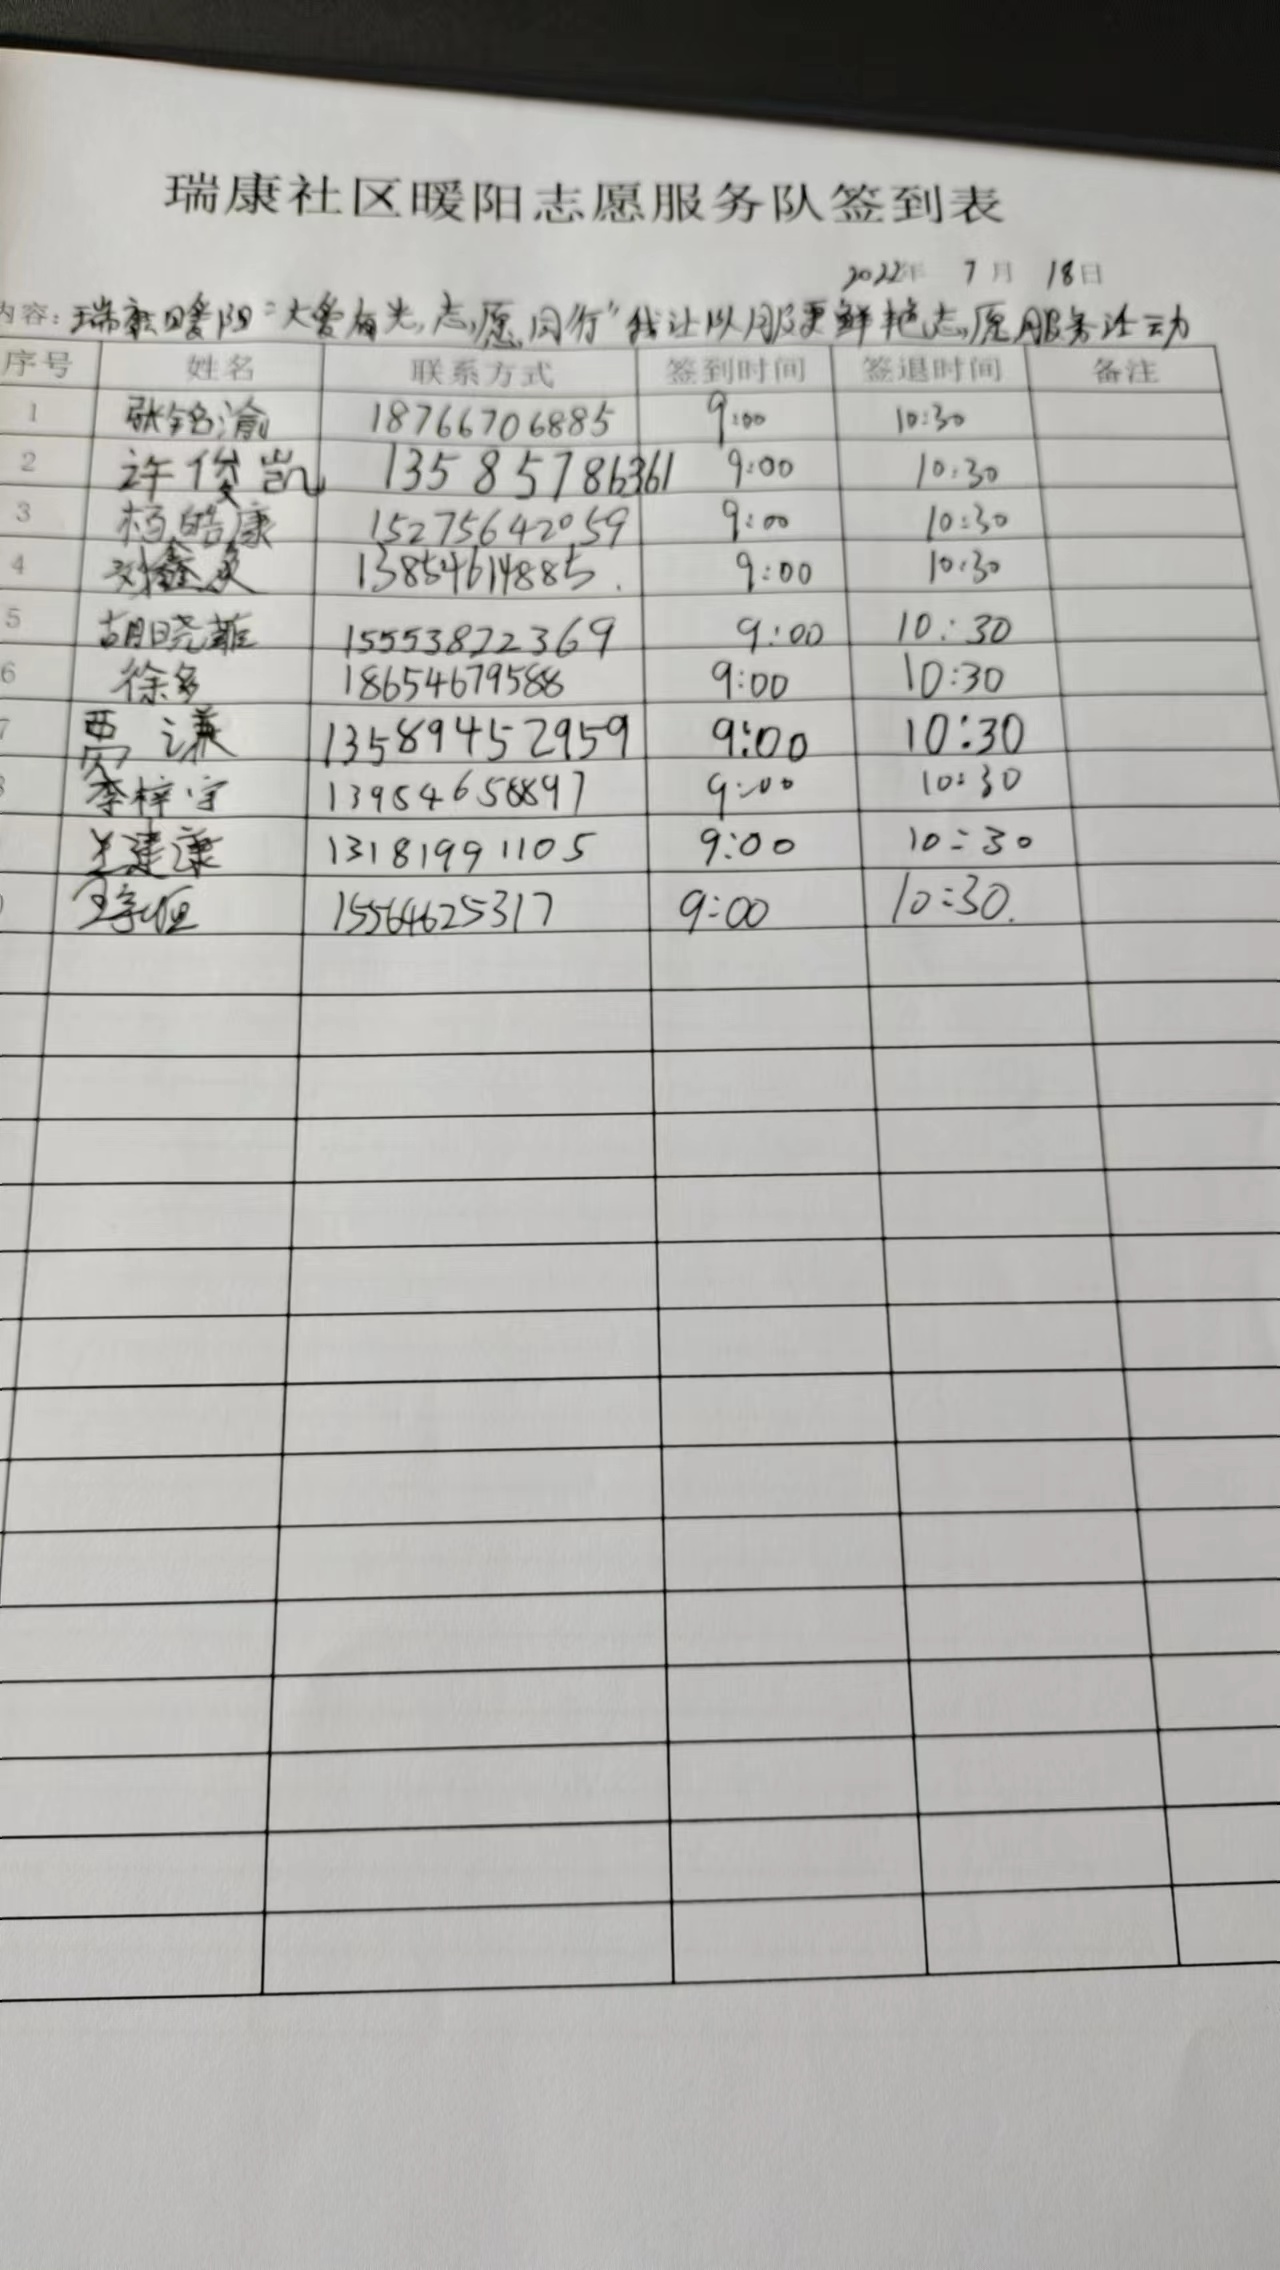 瑞康社区暖阳志愿服务队签到表
2022年 7月 18日
内容：瑞康暖阳“大爱有光，志愿同行”我让队服更鲜艳志愿服务活动
序号 姓名 联系方式 签到时间 签退时间 备注
1 张铭渝 18766706885 9:00 10:30
2 许俊凯 13585786361 9:00 10:30
3 杨皓康 15275642059 9:00 10:30
4 刘鑫 13854614885 9:00 10:30
5 胡晓 15553822369 9:00 10:30
6 徐多 18654679588 9:00 10:30
7 贾谦 13589452959 9:00 10:30
李梓宇 13954658897 9:00 10:30
建康 13181991105 9:00 10:30
15564625317 9:00 10:30